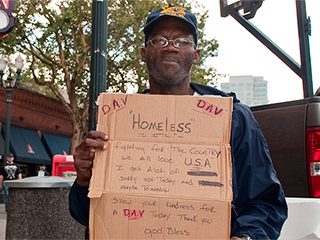 DAV
DAV
"HOMELESS"
fighting For The Country
we all love U.S.A
I get A Lot of
Sorry not Today and
maybe Tomorrow
Show your kindness for
A DAV Today Thank you
god Bless